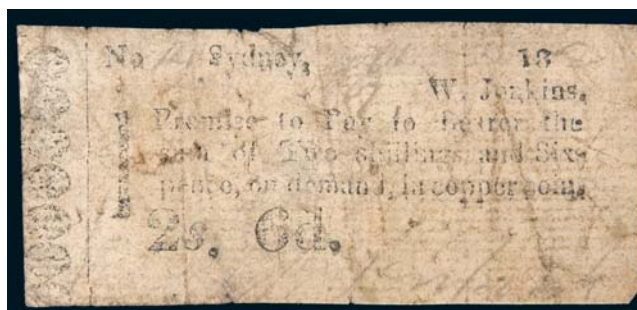 No Sydney, 18
W. Jenkins,
Promise to Pay to bearer the
sum of Two shillings and Six-
pence, on demand, in copper coin,
2s. 6d.